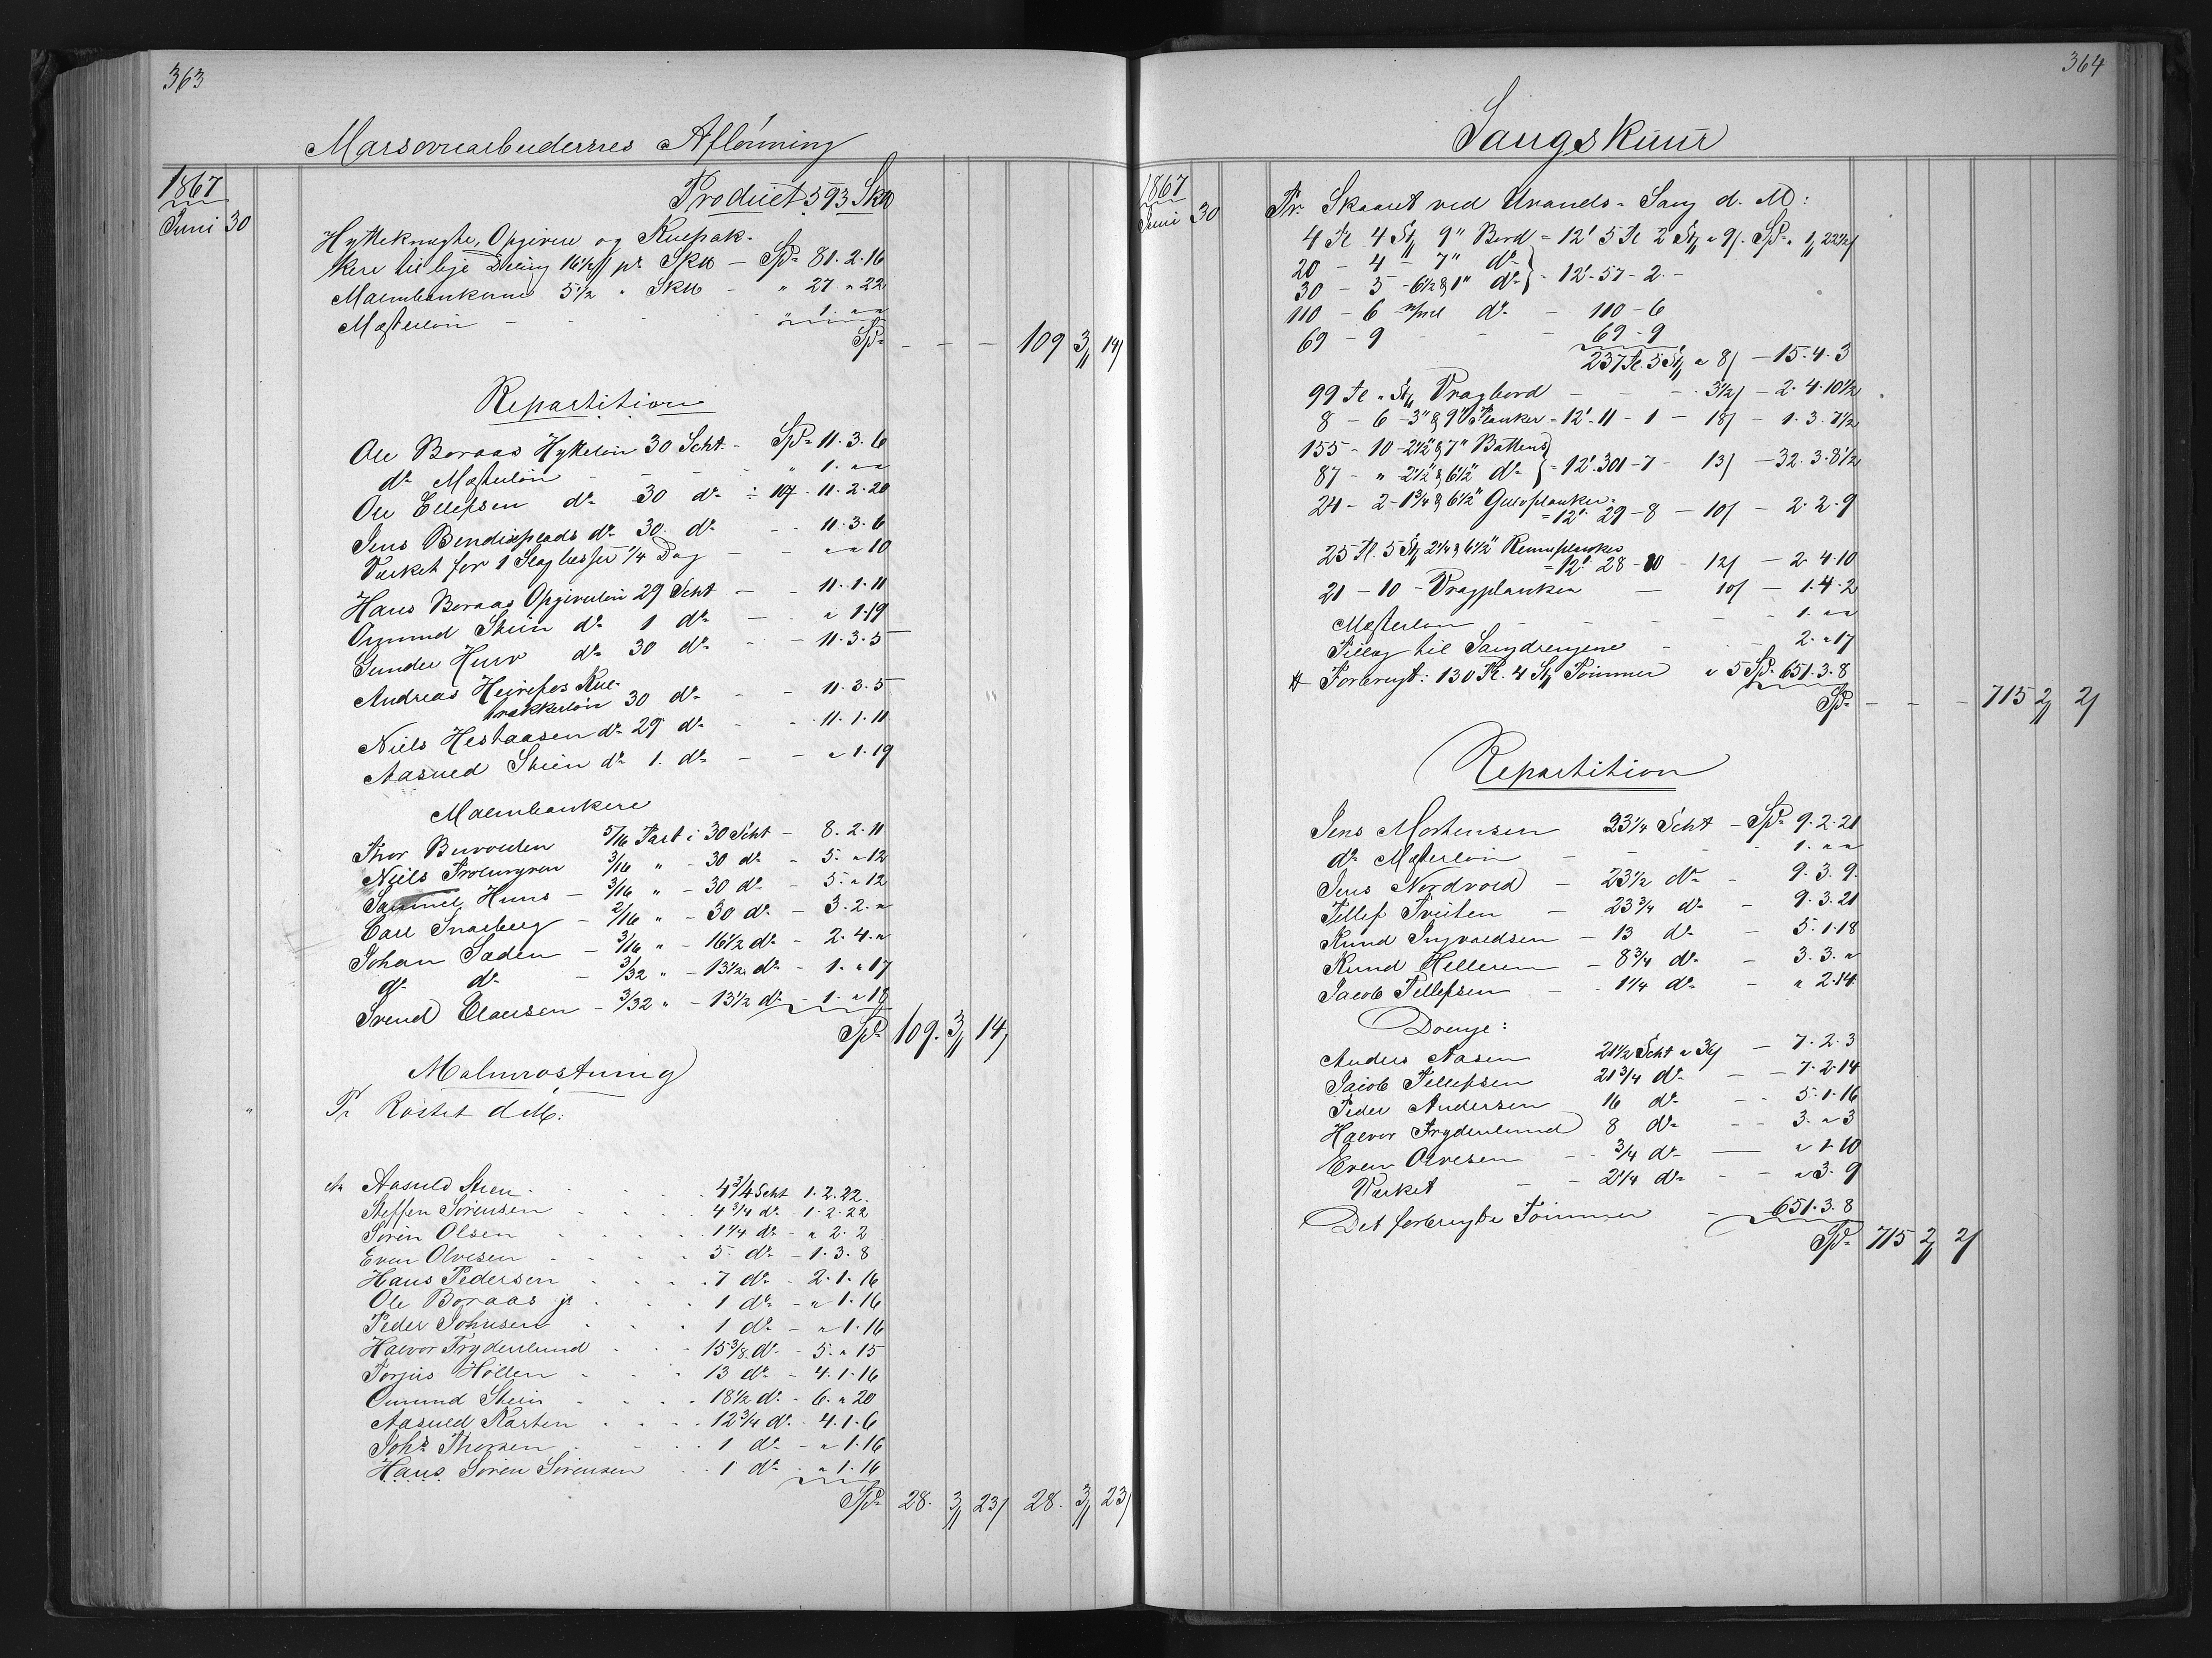 363
Masovnarbeidernes Aflönning
1867
Juni 30
Product 593 Sk℔
Hytteknegte, Opgivere og Kulpak-
kere til lige Deling 16½ß pr. Sk℔ — Spd 81. 2. 16
Malmbankerne 5½ " Sk℔ — " 27 " 22
Mesterlön — " 1. " "
Spd — — — 109 3 14
Repartition
Ole Boraas Hyttelön 30 Scht. — Spd 11. 3. 6
do Mesterlön — " 1. " "
Ole Ellefsen do 30 do 11. 2. 20
Jens Bendixplads do 30 do — 11. 3. 6
Værket for 1 ¼ Dag — " " 10
Hans Boraas Opgiverlön 29 Scht — 11. 1. 11
Omund Skien do 1 do — " 1. 19
Gunder Huro do 30 do — 11. 3. 5
Andreas Heirefos Kul-
pakkerlön 30 do — 11. 3. 5
Niels Hestaasen do 29 do — 11. 1. 11
Aasuld Skien do 1. do — " 1. 19
Malmbankere
Thor Buvolden 5/16 Part i 30 Scht — 8. 2. 11
Niels 3/16 " — 30 do — 5. " 12
Samuel Huus — 3/16 " — 30 do — 5. " 12
Carl Snarberg — 2/16 " — 30 do — 3. 2. "
Johan Saden — 3/16 " — 16½ do — 2. 4. "
do do — 3/32 " — 13½ do — 1. " 17
Svend Clausen — 3/32 " — 13½ do — 1. " 18
Spd 109. 3 14
Malmröstning
Pr Röstet d. M:
Aasuld Skien 4¾ Scht 1. 2. 22
Steffen Sörensen 4¾ do 1. 2. 22
Sören Olsen 1¼ do " 2. 2
Even Olvesen 5 do — 1. 3. 8
Hans Pedersen 7 do — 2. 1. 16
Ole Boraas jr 1 do — " 1. 16
Peder Johnsen 1 do — " 1. 16
Halvor Frydenlund 15⅜ do — 5. " 15
Torjus Höllen 13 do — 4. 1. 16
Omund Skien 18½ do — 6. " 20
Aasuld Karten 12¾ do — 4. 1. 6
Johs Thorsen 1 do — " 1. 16
Hans Sören Sörensen 1 do " 1. 16
Spd 28. 3 23 28. 3 23
364
Saugskuur
1867
Juni 30
Pr. Skaaret ved Urands-Saug d. M:
4 Tl. 4 St 9" Bord = 12' 5 Tl 2 St a 9ß. Spd " 1 22½ß
20 — 4 — 7" do
30 — 5 — 6½ & 1" do } = 12' 57 — 2 —
110 — 6 — do — 110 — 6
69 — 9 — — 69 — 9
237 Tl. 5 St a 8ß — 15. 4. 3
99 Tl " St Vragbord — — 3½ß — 2. 4. 10½
8 — 6 — 3" & 9" Planker = 12' 11 — 1 — 18ß — 1. 3. 7½
155 — 10 — 2½" & 7" Battens
87 — " 2½" & 6½" do } = 12' 301 — 7 — 13ß — 32. 3. 8½
24 — 2 — 1¾ & 6½" Gulvplanker
= 12' 29 — 8 — 10ß — 2. 2. 9
25 Tl. 5 St 2¼ & 6½"
= 12' 28 — 10 — 12ß — 2. 4. 10
21 — 10 — Vragplanker — 10ß — 1. 4. 2
Mesterlön — — 1. " "
Tillæg til Saugdrengene — 2. " 17
Forbrugt: 130 Tl. 4 St Tömmer a 5 Spd 651. 3. 8
Spd — — — 715 2 2
Repartition
Jens Mortensen 23¼ Scht — Spd 9. 2. 21
do Mesterlön — 1. " "
Jens Nordvold — 23½ do — 9. 3. 9
Tellef Tveiten — 23¾ do — 9. 3. 21
Knud Ingvaldsen — 13 do — 5. 1. 18
Knud Helleren — 8¾ do — 3. 3. "
Jacob Tellefsen — 1¼ do — " 2. 14
Drenge:
Anders Aasen 21½ Scht a 36ß — 7. 2. 3
Jacob Tellefsen 21¾ do — 7. 2. 14
Peder Andersen 16 do — 5. 1. 16
Halvor Frydenlund 8 do — 3. " 3
Even Olvesen — ¾ do — " 1. 10
Værket — 2¼ do — " 3. 9
Det forbrugte Tömmer — 651. 3. 8
Spd 715 2 2